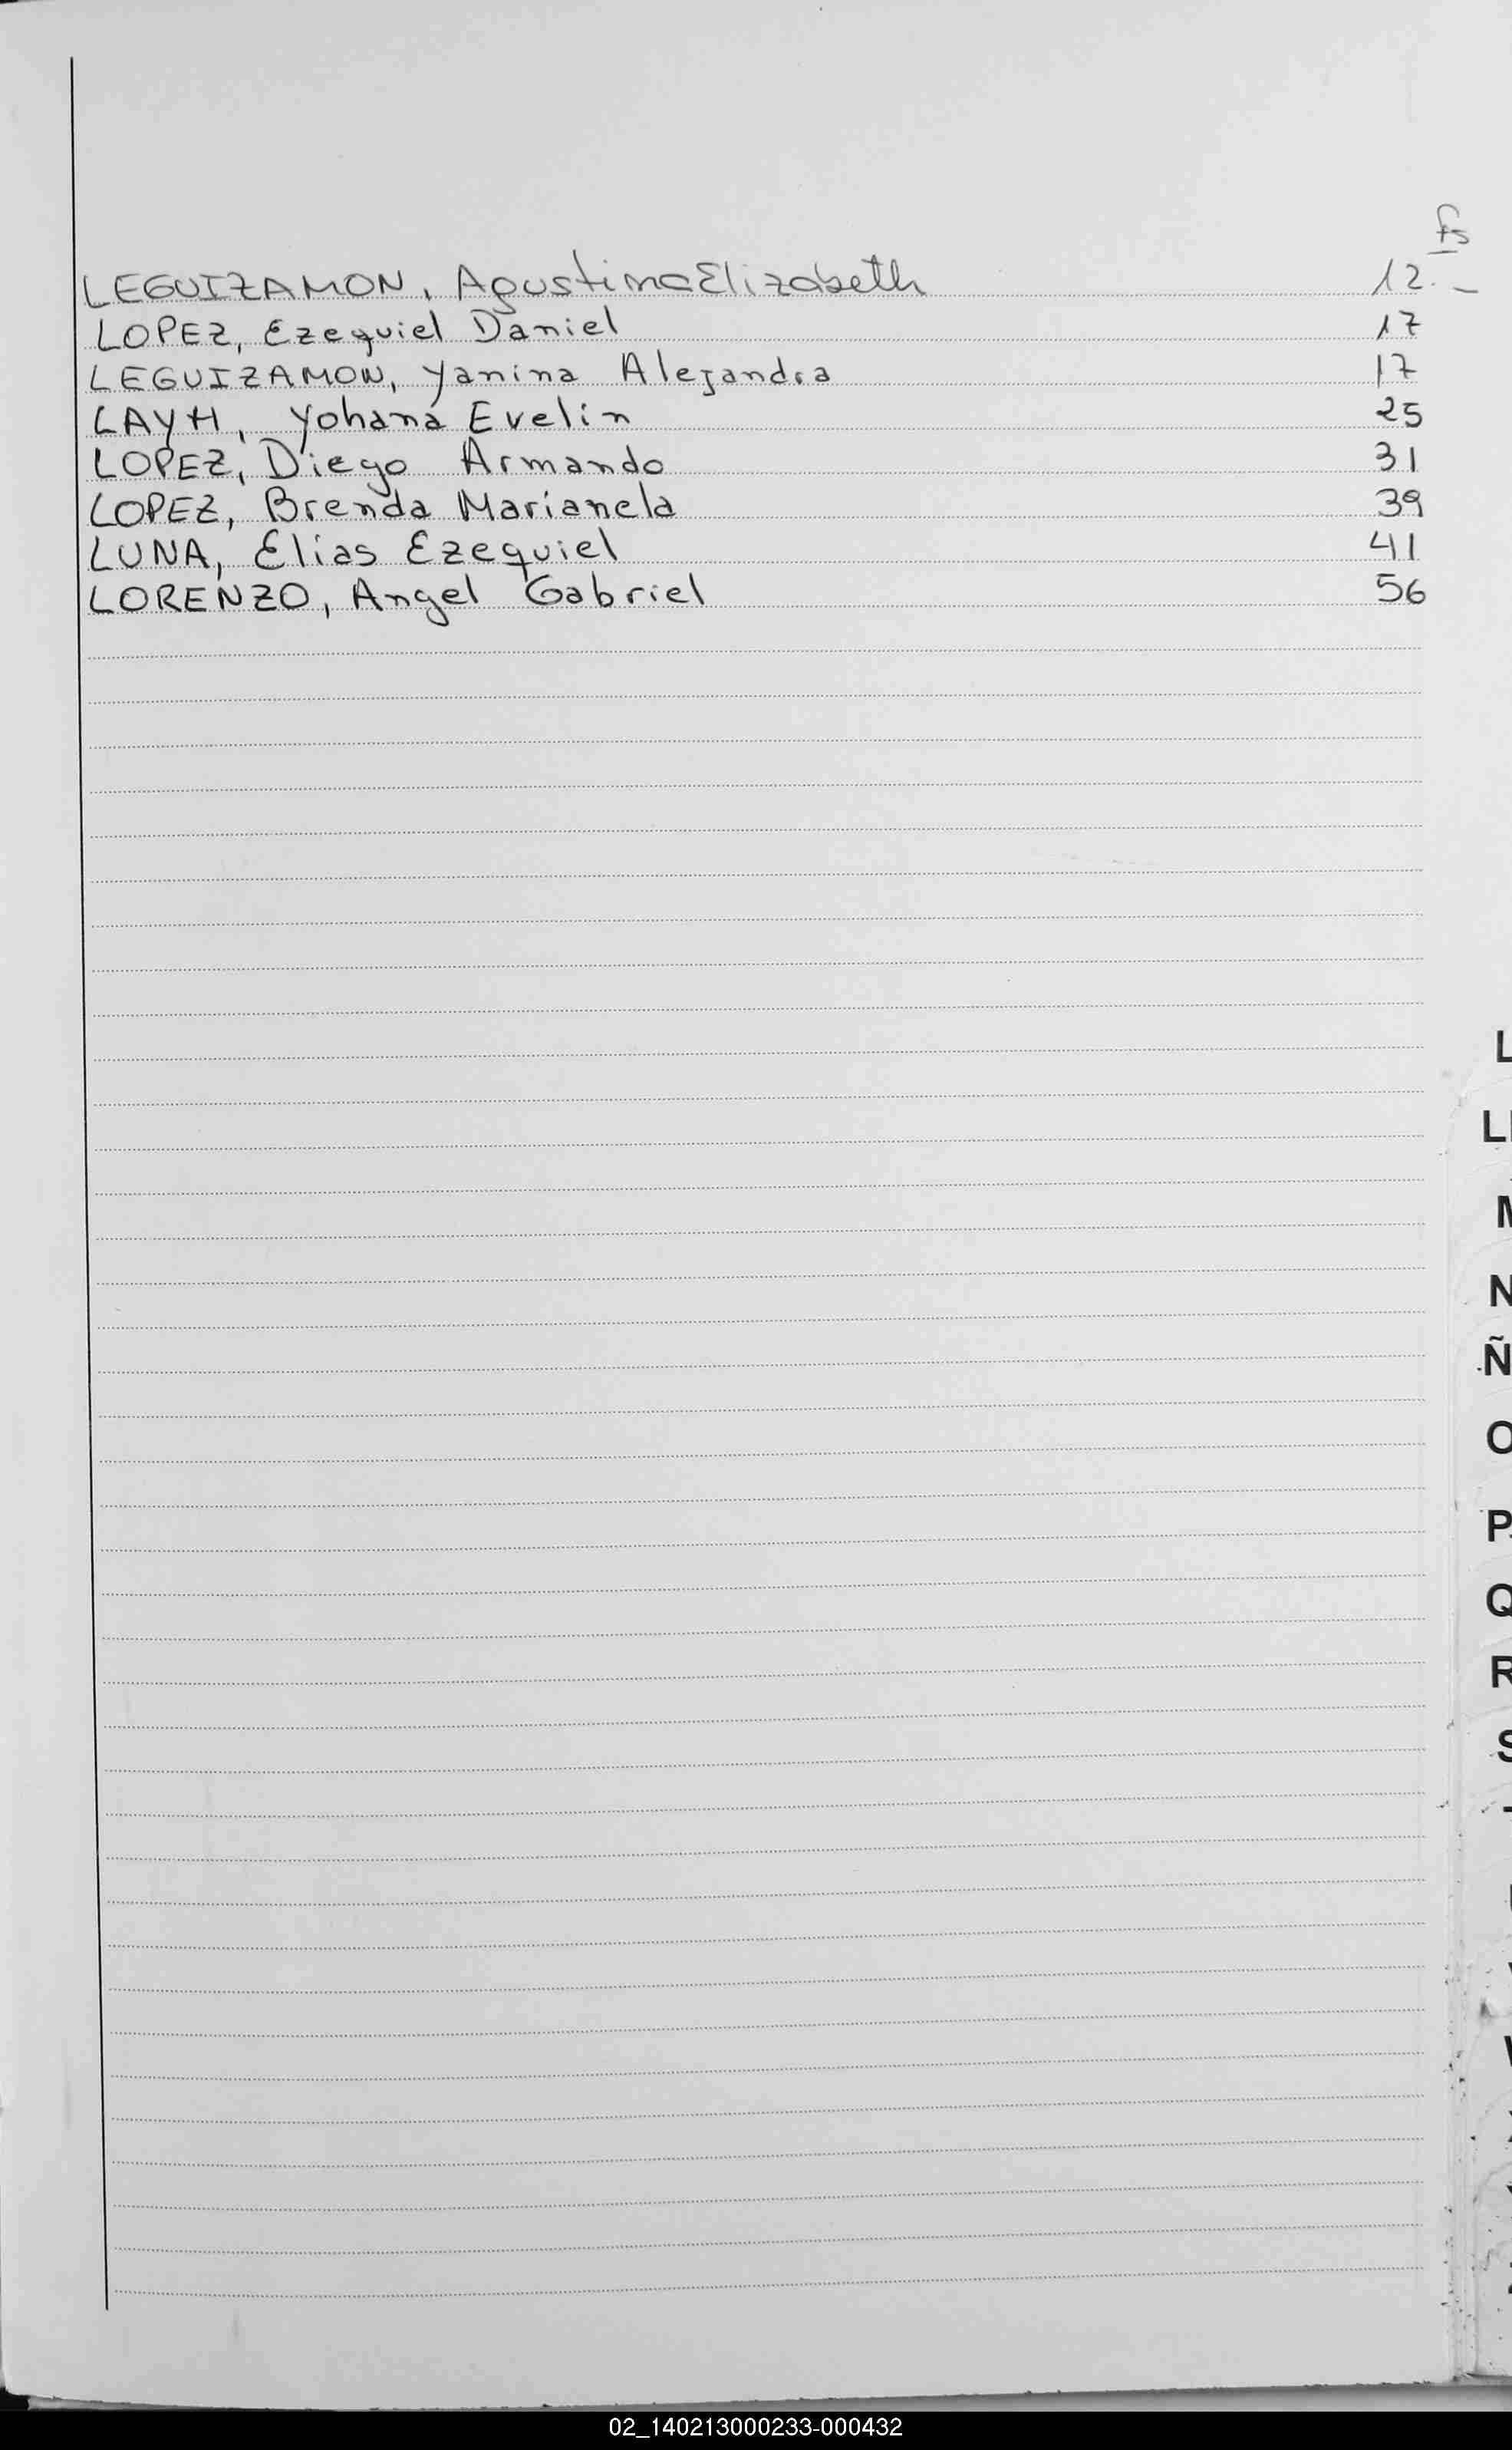 fs
LEGUIZAMON, Agustina Elizabeth 12.-
LOPEZ, Ezequiel Daniel 17
LEGUIZAMON, Yanina Alejandra 17
LAYH, Yohana Evelin 25
LOPEZ, Diego Armando 31
LOPEZ, Brenda Marianela 39
LUNA, Elias Ezequiel 41
LORENZO, Angel Gabriel 56
L
LL
M
N
Ñ
O
P
Q
R
S
02_140213000233-000432